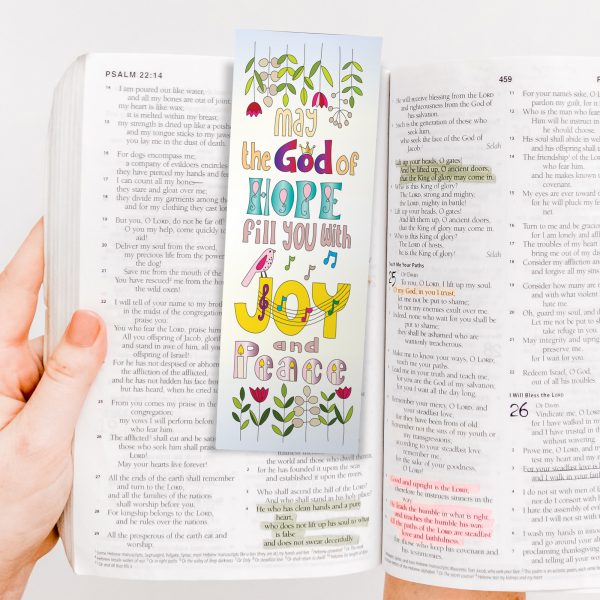 PSALM 22:14
14 I am poured out like water,
and all my bones are out of joint
my heart is like wax,
it is melted within my breast
15 my strength is dried up like a potsherd
and my tongue sticks to my jaws
you lay me in the dust of death.
16 For dogs encompass me,
a company of evildoers encircles
they have pierced my hands and feet
17 I can count all my bones—
they stare and gloat over me;
18 they divide my garments among them
and for my clothing they cast lots
19 But you, O LORD, do not be far off
O you my help, come quickly to
aid!
20 Deliver my soul from the sword,
my precious life from the power of
the dog!
21 Save me from the mouth of the
You have rescued me from the
the wild oxen!
22 I will tell of your name to my brothers
in the midst of the congregation
praise you:
23 You who fear the LORD, praise him
All you offspring of Jacob, glorify
and stand in awe of him, all you
offspring of Israel!
24 For he has not despised or abhorred
the affliction of the afflicted,
and he has not hidden his face from
but has heard, when he cried to
25 From you comes my praise in the
congregation;
my vows I will perform before
who fear him.
26 The afflicted shall eat and be satisfied
those who seek him shall praise
LORD!
May your hearts live forever!
27 All the ends of the earth shall remember
and turn to the LORD,
and all the families of the nations
shall worship before you.
28 For kingship belongs to the LORD,
and he rules over the nations.
29 All the prosperous of the earth eat and
worship;
may
the God of
HOPE
fill you with
JOY
and
Peace
the world and those who dwell
for he has founded it upon the seas
and established it upon the rivers.
Who shall ascend the hill of the LORD?
And who shall stand in his holy place?
He who has clean hands and a pure
heart,
who does not lift up his soul to what
is false
and does not swear deceitfully.
459
He will receive blessing from the LORD
and righteousness from the God of
his salvation.
Such is the generation of those who
seek him,
who seek the face of the God of
Jacob.
Selah
Lift up your heads, O gates!
And be lifted up, O ancient doors,
that the King of glory may come in.
Who is this King of glory?
The LORD, strong and mighty,
the LORD, mighty in battle!
Lift up your heads, O gates!
And lift them up, O ancient doors,
that the King of glory may come in.
Who is this King of glory?
The LORD of hosts,
he is the King of glory!
Selah
Teach Me Your Paths
25 Of David.
To you, O LORD, I lift up my soul.
O my God, in you I trust;
let me not be put to shame;
let not my enemies exult over me.
Indeed none who wait for you shall be
put to shame;
they shall be ashamed who are
wantonly treacherous.
Make me to know your ways, O LORD;
teach me your paths.
Lead me in your truth and teach me,
for you are the God of my salvation;
for you I wait all the day long.
Remember your mercy, O LORD, and
your steadfast love,
for they have been from of old.
Remember not the sins of my youth or
my transgressions;
according to your steadfast love
remember me,
for the sake of your goodness,
O LORD!
Good and upright is the LORD;
therefore he instructs sinners in the
way.
He leads the humble in what is right,
and teaches the humble his way.
All the paths of the LORD are steadfast
love and faithfulness,
for those who keep his covenant and
his testimonies.
11 For your name's sake, O
pardon my guilt, for it
12 Who is the man who fears
Him will he instruct in
he should choose.
13 His soul shall abide in well-
and his offspring shall
14 The friendship of the LORD
who fear him,
and he makes known
covenant.
15 My eyes are ever toward
for he will pluck my feet
net.
16 Turn to me and be gracious
for I am lonely and afflicted
17 The troubles of my heart
bring me out of my
18 Consider my affliction and
and forgive all my sins
19 Consider how many are
and with what violent
hate me.
20 Oh, guard my soul, and
Let me not be put to
take refuge in you.
21 May integrity and upright
preserve me,
for I wait for you.
22 Redeem Israel, O God,
out of all his troubles.
I Will Bless the LORD
26 Of David.
Vindicate me, O LORD,
for I have walked in
and I have trusted in
without wavering.
2 Prove me, O LORD, and
test my heart and my
3 For your steadfast love is
and I walk in your
4 I do not sit with men of
nor do I consort with
5 I hate the assembly of
and I will not sit with
6 I wash my hands in
and go around your altar
7 proclaiming thanksgiving
and telling all your